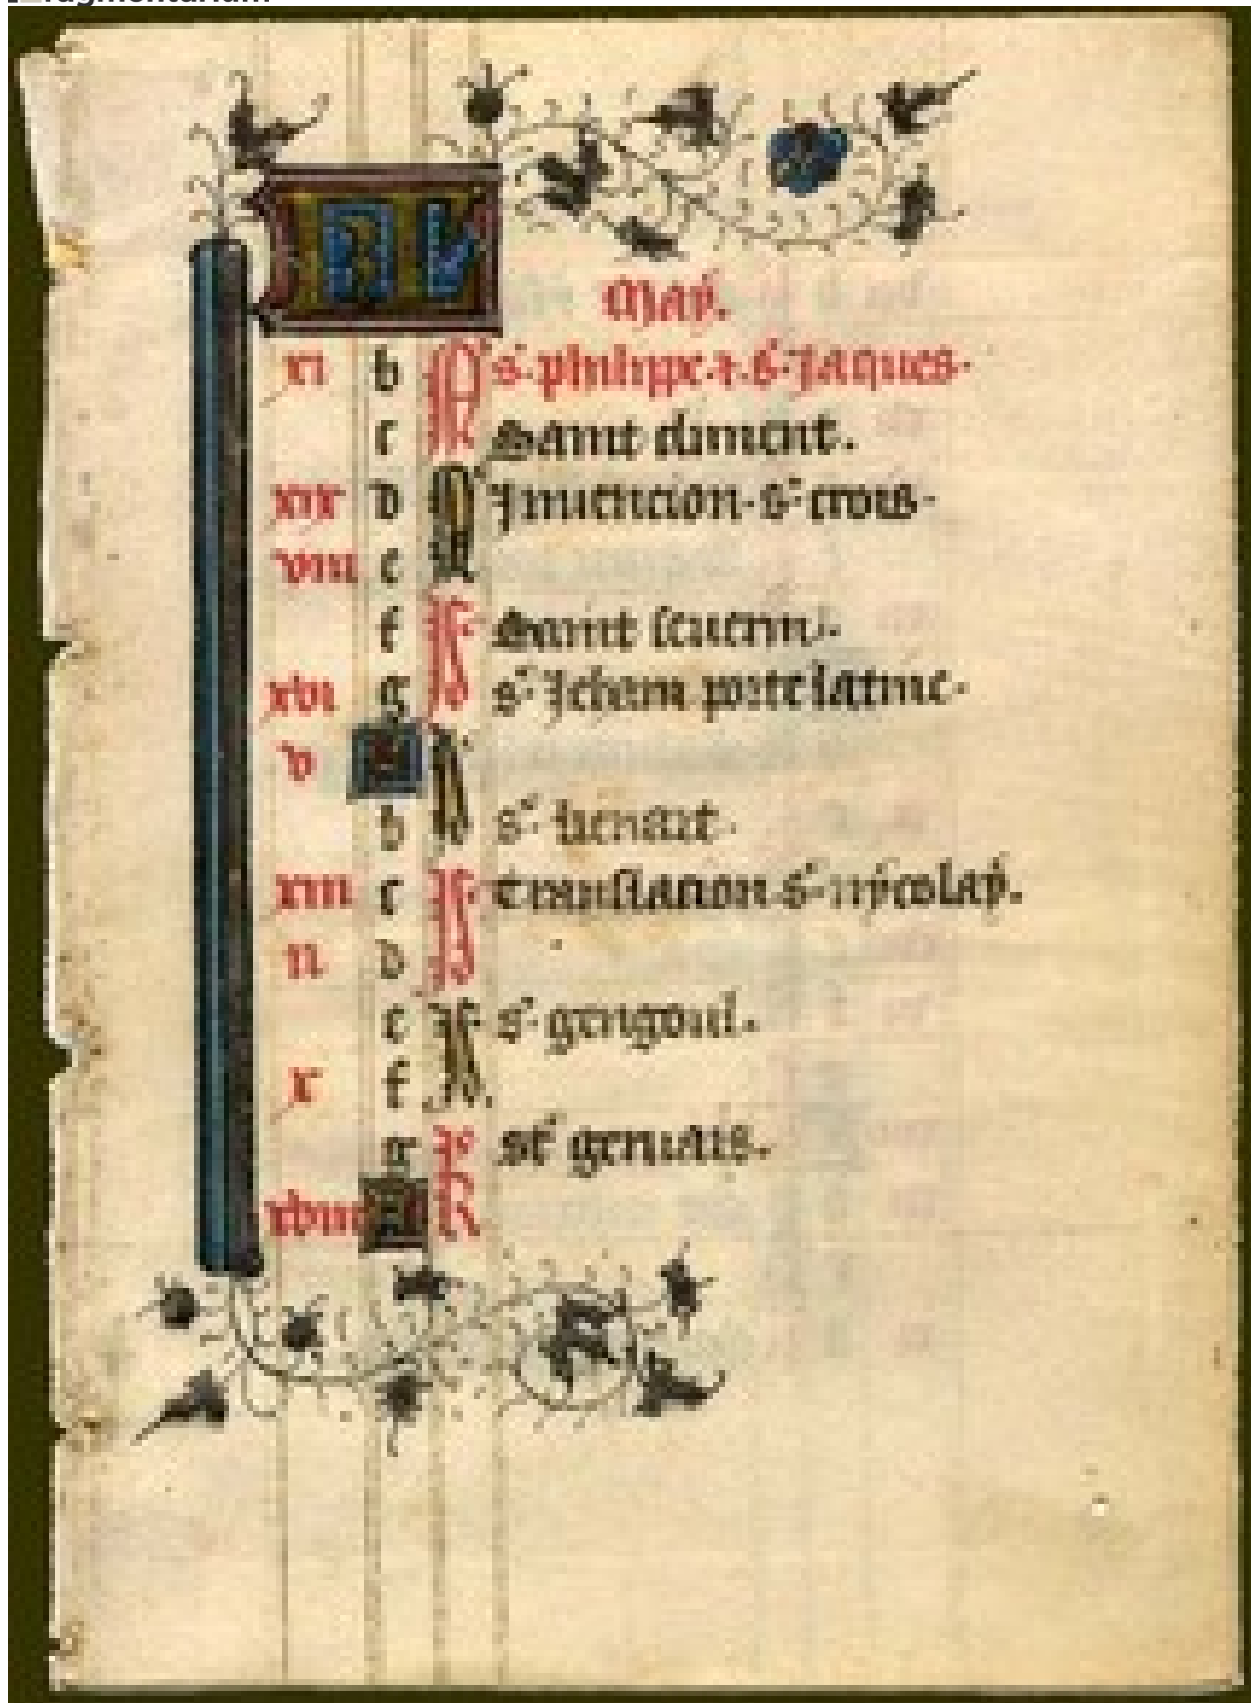 Fragmentarium
KL
May.
xi b s. philippe. et. s. Jaques.
c Saint climent.
xix d Jnuencion. s. crois.
viii e
f Saint seuerin.
xvi g s. Jehan porte latine.
v A
b s.
xiii c Translacion s. nycolay.
ii d
e s. gengoul.
x f
g st geruais.
xviii A